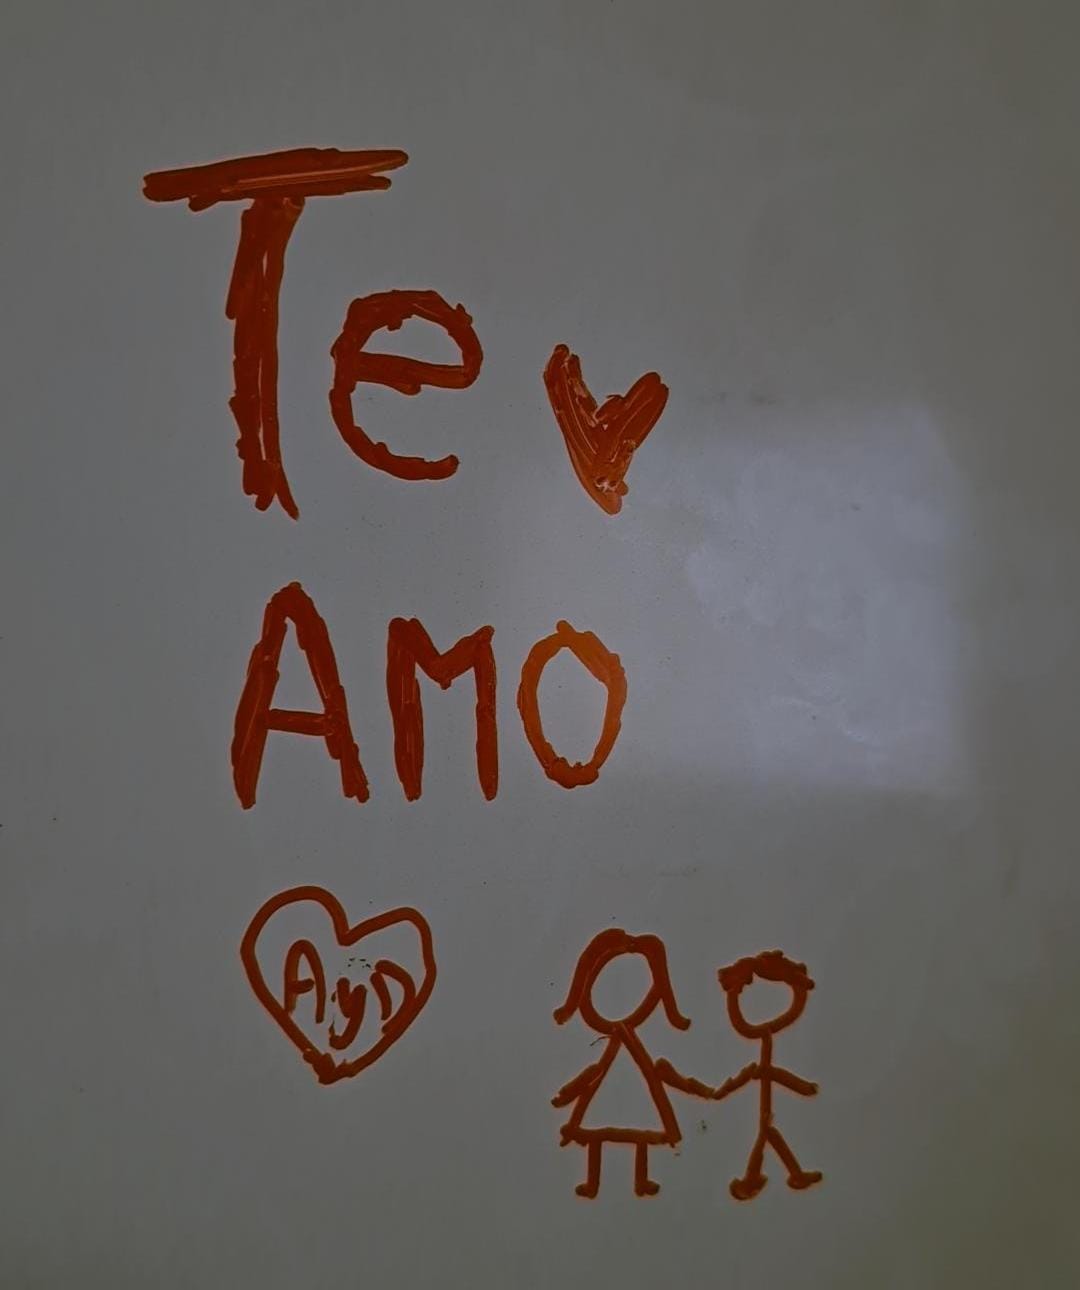 Te
AMO
AyD